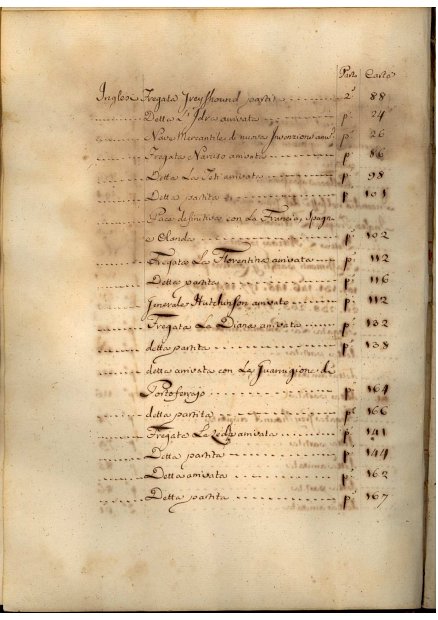 Parte Carte
Inglese Fregata Greyhound partita 2ª 88
Detta L'Idra arrivata pª 24
Nave Mercantile di nuova Invenzione pª 26
Fregata Narciso arrivata pª 86
Detta La Teti arrivata pª 98
Detta partita pª 101
Pace definitiva con la Francia, Spagna
e Olanda pª 102
Fregata La Florentina arrivata pª 112
Detta partita pª 116
Generale Hutchinson arrivato pª 112
Fregata La Diana arrivata pª 132
detta partita pª 138
detta arrivata con La Guarnigione di
Portoferrajo pª 164
detta partita pª 166
Fregata La Leda arrivata pª 141
Detta partita pª 144
Detta arrivata pª 162
Detta partita pª 167